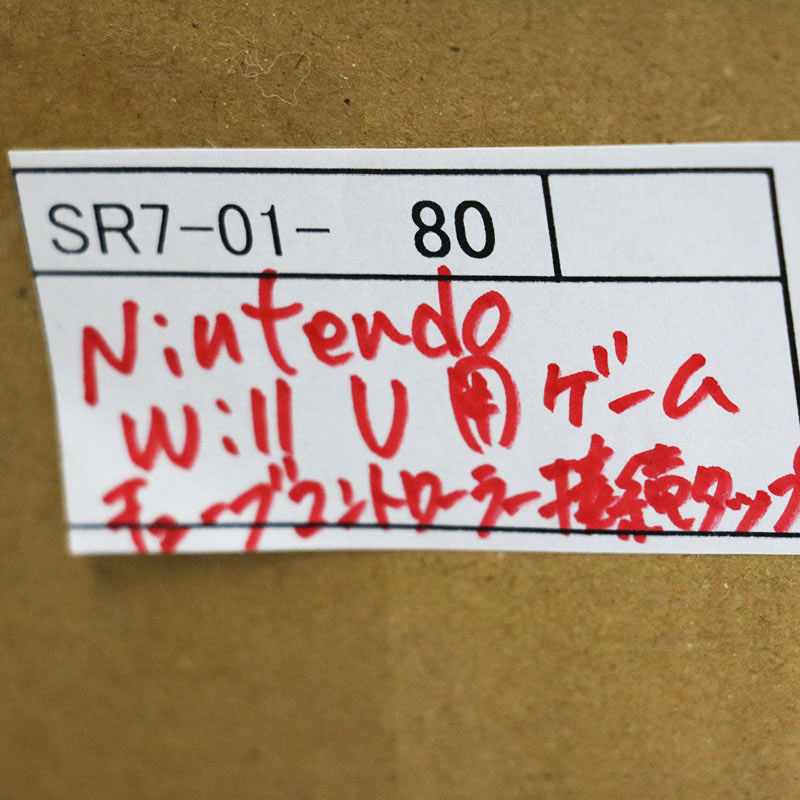 SR7-01- 80
Nintendo
Will U用ゲーム
チューブコントローラー接続タップ